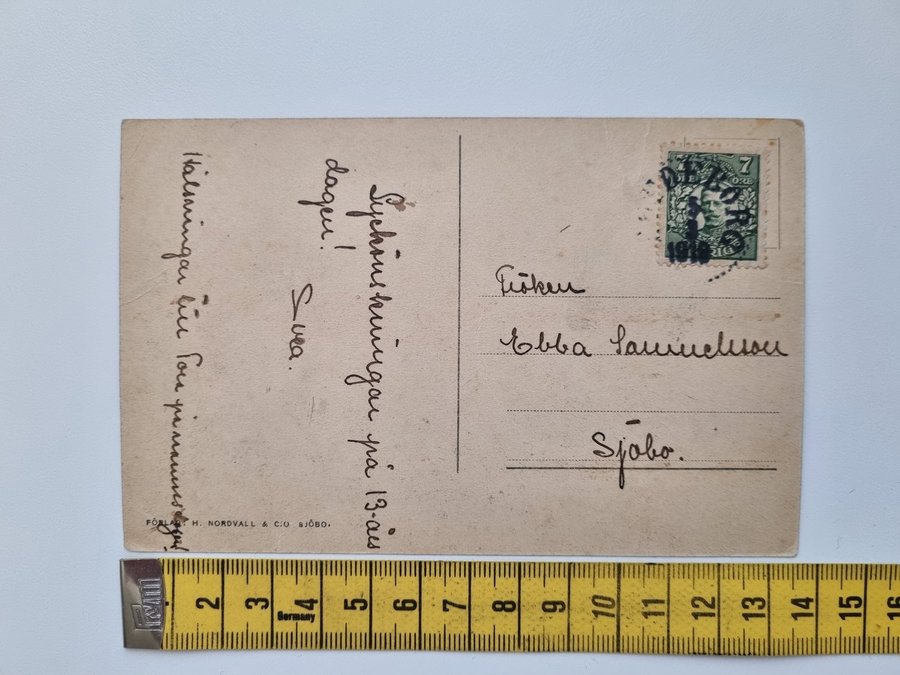 Lyckönskningar på 13-års
dagen!
Svea.
Hälsningar till Tor på namnsdagen!
7
1918
Fröken
Ebba Samuelsson
Sjöbo.
FÖRLAG: H. NORDVALL & C:O SJÖBO.
2 3 4 5 6 7 8 9 10 11 12 13 14 15 16
Germany